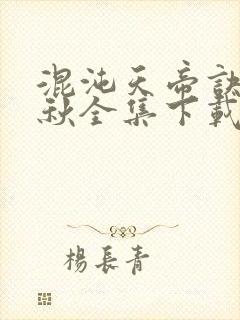 混沌天帝訣
秋全集下載
楊長青